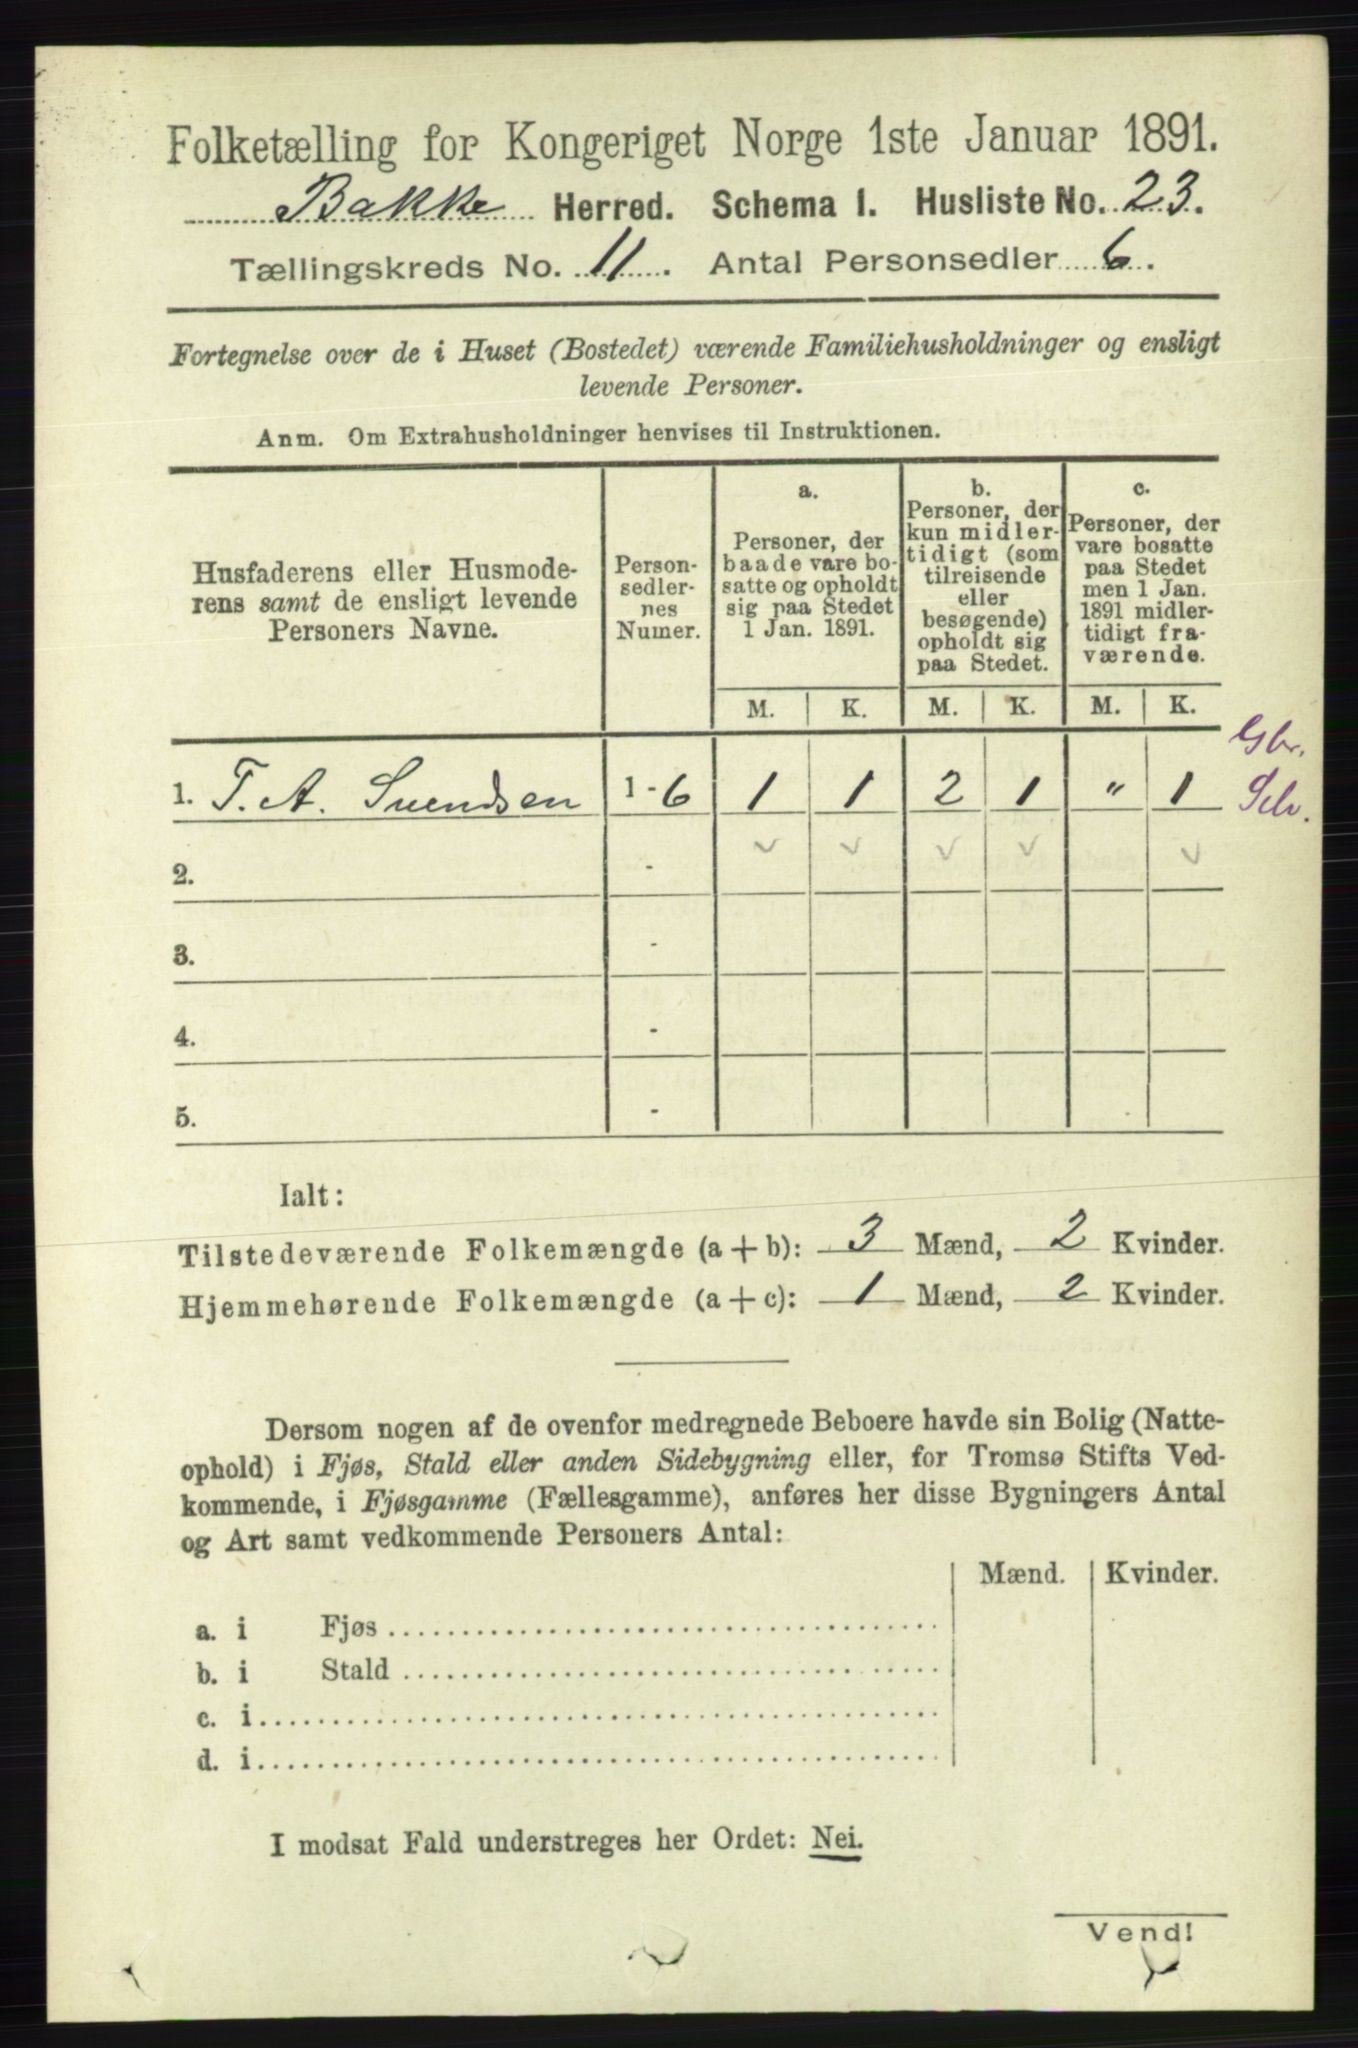 Folketælling for Kongeriget Norge 1ste Januar 1891.
Bakke Herred. Schema I. Husliste No. 23.
Tællingskreds No. 11. Antal Personsedler 6.
Fortegnelse over de i Huset (Bostedet) værende Familiehusholdninger og ensligt
levende Personer.
Anm. Om Extrahusholdninger henvises til Instruktionen.
Husfaderens eller Husmode-
rens samt de ensligt levende
Personers Navne.
Person-
sedler-
nes
Numer.
a.
Personer, der
baade vare bo-
satte og opholdt
sig paa Stedet
1 Jan. 1891.
b.
Personer, der
kun midler-
tidigt (som
tilreisende
eller
besøgende)
opholdt sig
paa Stedet.
c.
Personer, der
vare bosatte
paa Stedet
men 1 Jan.
1891 midler-
tidigt fra-
værende.
M. K. M. K. M. K.
Gbr.
1. T. A. Svendsen 1-6 1 1 2 1 " 1 Selv.
2. -
3. -
4. -
5. -
Ialt:
Tilstedeværende Folkemængde (a + b): 3 Mænd, 2 Kvinder.
Hjemmehørende Folkemængde (a + c): 1 Mænd, 2 Kvinder.
Dersom nogen af de ovenfor medregnede Beboere havde sin Bolig (Natte-
ophold) i Fjøs, Stald eller anden Sidebygning eller, for Tromsø Stifts Ved-
kommende, i Fjøsgamme (Fællesgamme), anføres her disse Bygningers Antal
og Art samt vedkommende Personers Antal:
Mænd. Kvinder.
a. i Fjøs
b. i Stald
c. i
d. i
I modsat Fald understreges her Ordet: Nei.
Vend!